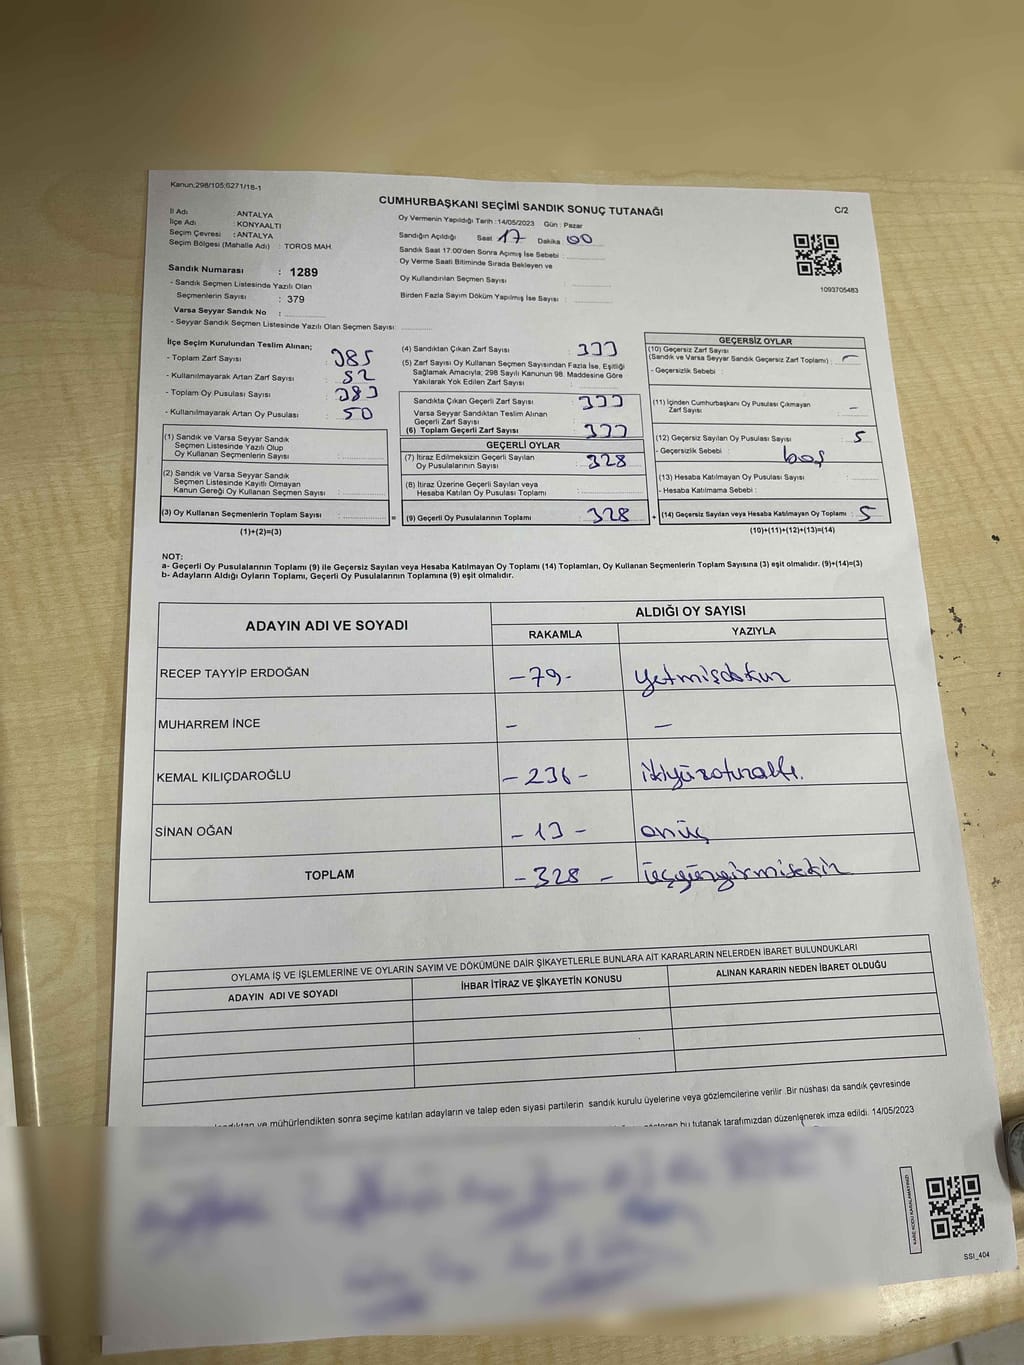 Kanun.298/105;6271/18-1
CUMHURBAŞKANI SEÇİMİ SANDIK SONUÇ TUTANAĞI
C/2
İl Adı : ANTALYA
İlçe Adı : KONYAALTI
Seçim Çevresi : ANTALYA
Seçim Bölgesi (Mahalle Adı) : TOROS MAH.
Sandık Numarası : 1289
- Sandık Seçmen Listesinde Yazılı Olan
Seçmenlerin Sayısı : 379
Varsa Seyyar Sandık No :
- Seyyar Sandık Seçmen Listesinde Yazılı Olan Seçmen Sayısı :
Oy Vermenin Yapıldığı Tarih : 14/05/2023 Gün : Pazar
Sandığın Açıldığı Saat 17 Dakika 00
Sandık Saat 17:00'den Sonra Açımış İse Sebebi :
Oy Verme Saati Bitiminde Sırada Bekleyen ve
Oy Kullandırılan Seçmen Sayısı :
Birden Fazla Sayım Döküm Yapılmış İse Sayısı :
1093705483
İlçe Seçim Kurulundan Teslim Alınan;
- Toplam Zarf Sayısı : 385
- Kullanılmayarak Artan Zarf Sayısı : 52
- Toplam Oy Pusulası Sayısı : 383
- Kullanılmayarak Artan Oy Pusulası : 50
(1) Sandık ve Varsa Seyyar Sandık
Seçmen Listesinde Yazılı Olup
Oy Kullanan Seçmenlerin Sayısı :
(2) Sandık ve Varsa Seyyar Sandık
Seçmen Listesinde Kayıtlı Olmayan
Kanun Gereği Oy Kullanan Seçmen Sayısı :
(3) Oy Kullanan Seçmenlerin Toplam Sayısı :
(1)+(2)=(3)
(4) Sandıktan Çıkan Zarf Sayısı : 333
(5) Zarf Sayısı Oy Kullanan Seçmen Sayısından Fazla İse, Eşitliği
Sağlamak Amacıyla, 298 Sayılı Kanunun 98. Maddesine Göre
Yakılarak Yok Edilen Zarf Sayısı :
Sandıkta Çıkan Geçerli Zarf Sayısı : 333
Varsa Seyyar Sandıktan Teslim Alınan
Geçerli Zarf Sayısı :
(6) Toplam Geçerli Zarf Sayısı : 333
GEÇERLİ OYLAR
(7) İtiraz Edilmeksizin Geçerli Sayılan
Oy Pusulalarının Sayısı : 328
(8) İtiraz Üzerine Geçerli Sayılan veya
Hesaba Katılan Oy Pusulası Toplamı :
=
(9) Geçerli Oy Pusulalarının Toplamı : 328
+
GEÇERSİZ OYLAR
(10) Geçersiz Zarf Sayısı
(Sandık ve Varsa Seyyar Sandık Geçersiz Zarf Toplamı) : -
- Geçersizlik Sebebi :
(11) İçinden Cumhurbaşkanı Oy Pusulası Çıkmayan
Zarf Sayısı : -
(12) Geçersiz Sayılan Oy Pusulası Sayısı : 5
- Geçersizlik Sebebi : boş
(13) Hesaba Katılmayan Oy Pusulası Sayısı :
- Hesaba Katılmama Sebebi :
(14) Geçersiz Sayılan veya Hesaba Katılmayan Oy Toplamı : 5
(10)+(11)+(12)+(13)=(14)
NOT:
a- Geçerli Oy Pusulalarının Toplamı (9) ile Geçersiz Sayılan veya Hesaba Katılmayan Oy Toplamı (14) Toplamları, Oy Kullanan Seçmenlerin Toplam Sayısına (3) eşit olmalıdır. (9)+(14)=(3)
b- Adayların Aldığı Oyların Toplamı, Geçerli Oy Pusulalarının Toplamına (9) eşit olmalıdır.
ADAYIN ADI VE SOYADI
ALDIĞI OY SAYISI
RAKAMLA YAZIYLA
RECEP TAYYİP ERDOĞAN -79- yetmişdokuz
MUHARREM İNCE - -
KEMAL KILIÇDAROĞLU -236- ikiyüzotuzaltı.
SİNAN OĞAN -13- onüç
TOPLAM -328- üçyüzyirmisekiz
OYLAMA İŞ VE İŞLEMLERİNE VE OYLARIN SAYIM VE DÖKÜMÜNE DAİR ŞİKAYETLERLE BUNLARA AİT KARARLARIN NELERDEN İBARET BULUNDUKLARI
ADAYIN ADI VE SOYADI İHBAR İTİRAZ VE ŞİKAYETİN KONUSU ALINAN KARARIN NEDEN İBARET OLDUĞU
ve mühürlendikten sonra seçime katılan adayların ve talep eden siyasi partilerin sandık kurulu üyelerine veya gözlemcilerine verilir .Bir nüshası da sandık çevresinde
bu tutanak tarafımızdan düzenlenerek imza edildi. 14/05/2023
KARE KODU KARALAMAYINIZ!
SSI_404